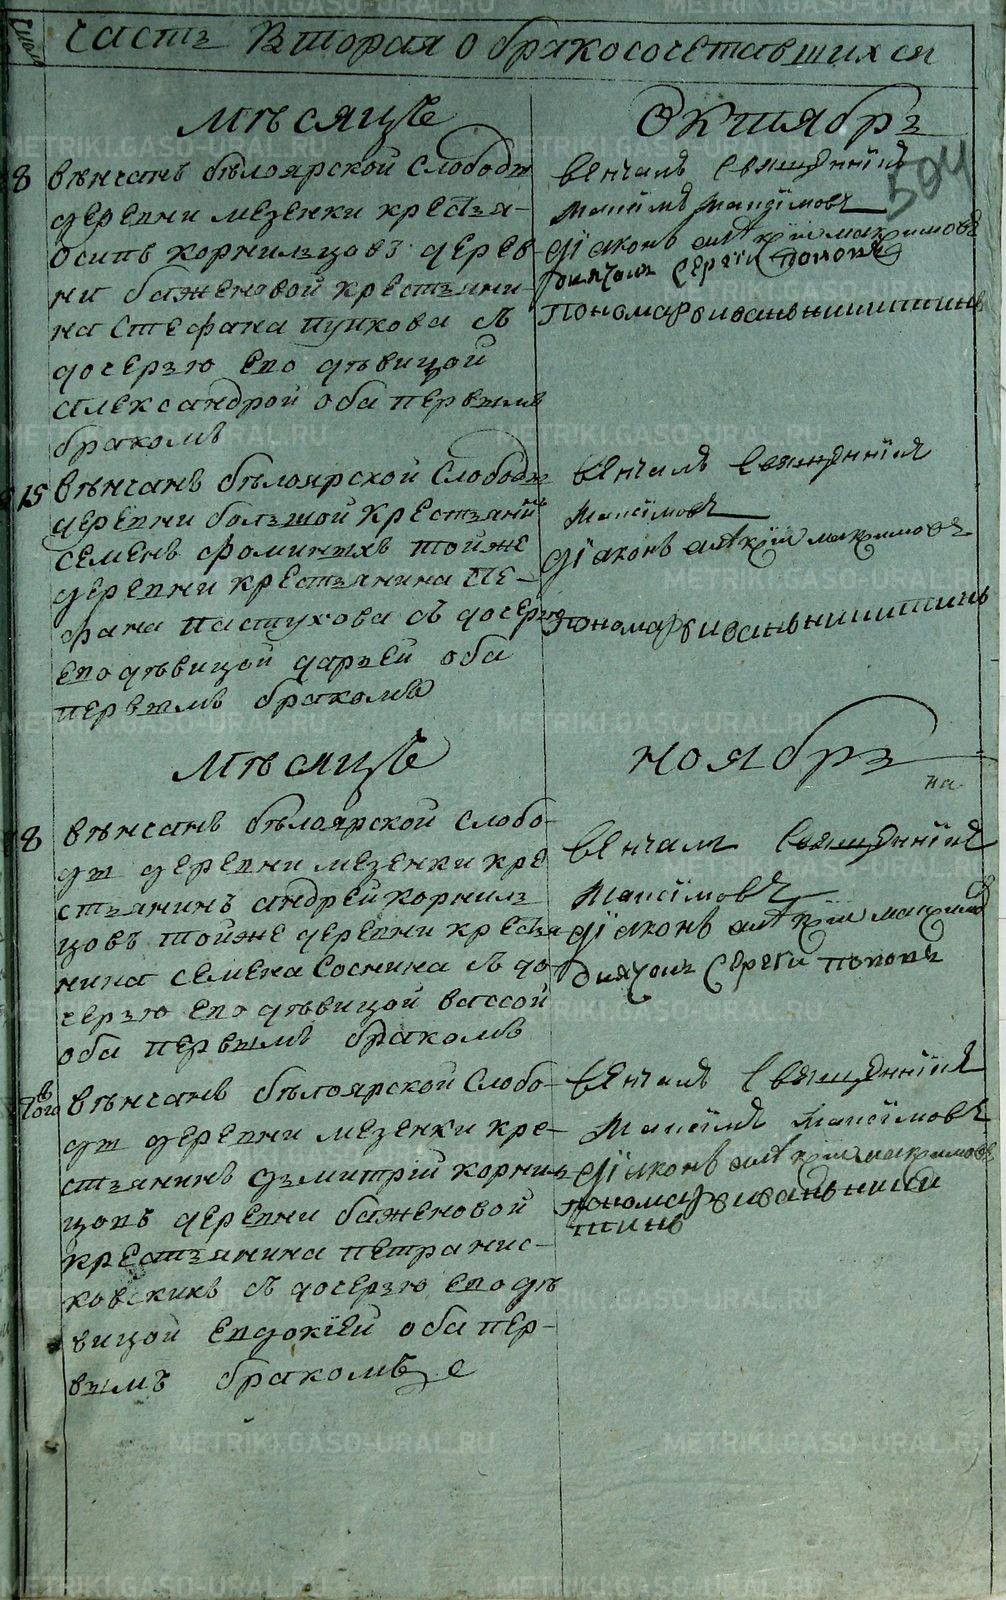 Число
часть Вторая о бракосочетавшихся
Мѣсяцъ
Октябрь
504
8
вѣнчанъ бѣлоярской слободы
деревни мезенки крестья-
осипъ корнильцовъ дерев-
ни баженовой крестьяни-
на стефана пупкова съ
дочерью ево девицой
александрой оба первымъ
бракомъ
венчалъ священникъ
Максимъ Максимовъ
дїаконъ алексїй максимовъ
дьячокъ сергїй поповъ
пономарь иванъ никитинъ
15
вѣнчанъ бѣлоярской слободы
деревни большой крестьянинъ
семенъ фоминыхъ той же
деревни крестьянина сте-
фана пастухова съ дочерью
ево девицой дарьей оба
первымъ бракомъ
венчалъ священникъ
Максимовъ
дїаконъ алексїй максимовъ
пономарь иванъ никитинъ
Мѣсяцъ
ноябрь
на
8
вѣнчанъ бѣлоярской слобо-
ды деревни мезенки кре
стьянинъ андрей корниль
цовъ той же деревни крестья
нина семена соснина съ до
черью ево девицой вассой
оба первымъ бракомъ
венчалъ священникъ
Максимовъ
дїаконъ алексїй максимовъ
дьячокъ сергеи поповъ
того
вѣнчанъ бѣлоярской слобо-
ды деревни мезенки кре-
стьянинъ дьмитрїй корниль
цовъ деревни баженовой
крестьянина петра
съ дочерью ево дѣ
вицой евдокїей оба пер-
вымъ бракомъ
венчалъ священникъ
Максимъ Максимовъ
дїаконъ алексїй максимовъ
пономарь иванъ ники
тинъ
METRIKI.GASO-URAL.RU